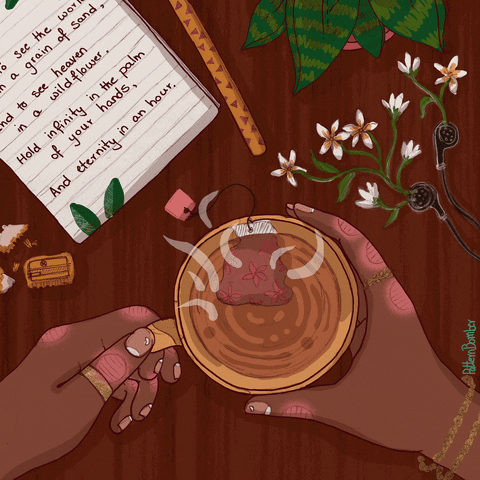 To see the world
in a grain of sand,
And to see heaven
in a wildflower,
Hold infinity in the palm
of your hands,
And eternity in an hour.
PatternBomber